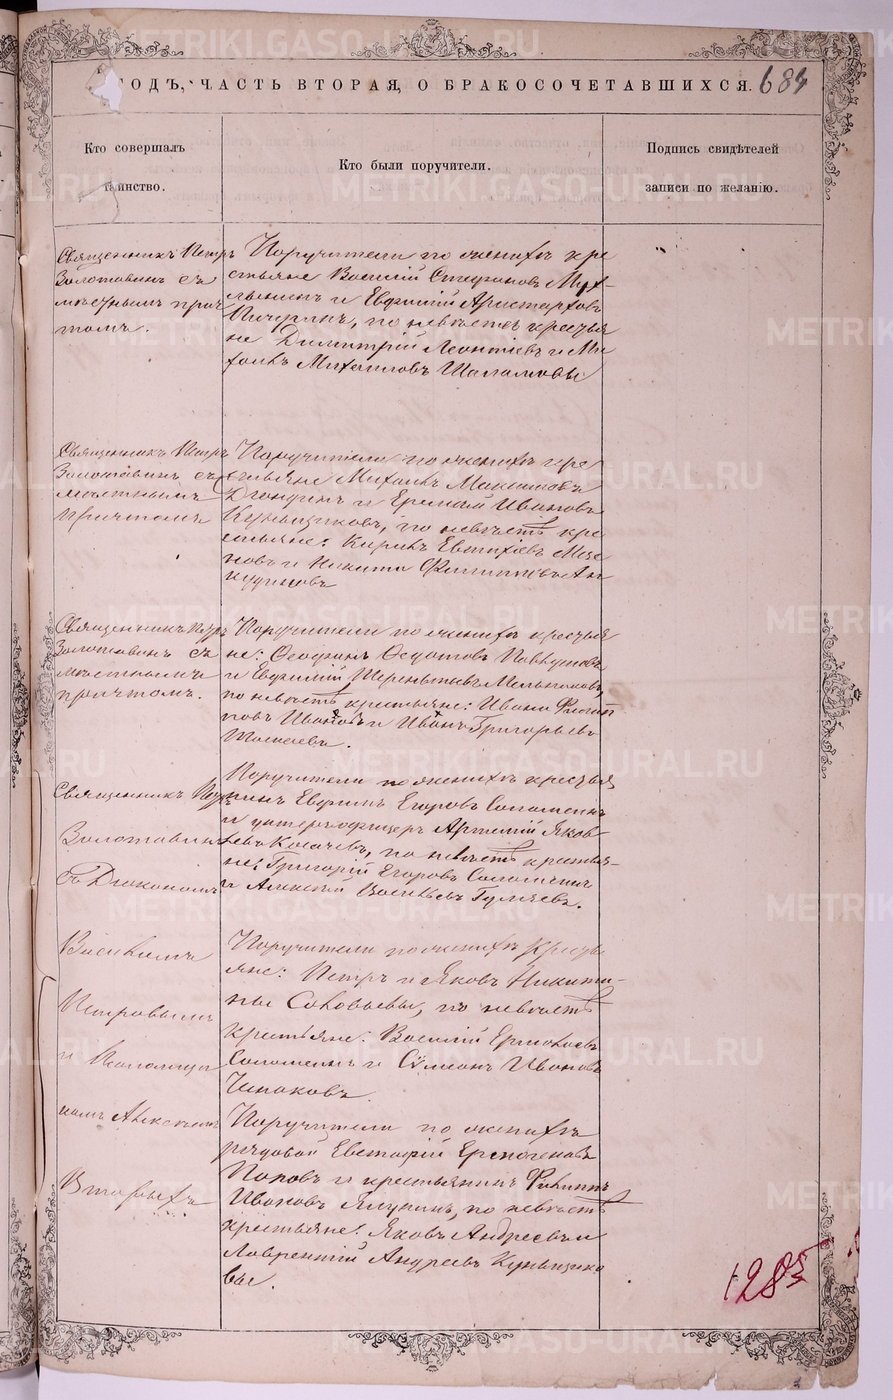 ГОДЪ, ЧАСТЬ ВТОРАЯ, О БРАКОСОЧЕТАВШИХСЯ. 684
Кто совершалъ
таинство.
Кто были поручители.
Подпись свидѣтелей
записи по желанію.
Священникъ Петръ
Золотавинъ съ
мѣстнымъ прич
томъ.
Поручители по женихѣ кре
стьяне Василій Стефановъ
и Евфимій Аристарховъ
Пичугинъ, по невѣстѣ крестья
не Димитрій Леонтіевъ и Ми
хаилъ Михаиловъ Шаламовы
Священникъ Петръ
Золотавинъ съ
мѣстнымъ
причтомъ
Поручители по женихѣ кре
стьяне Михаилъ Максимовъ
и Еремѣй Ивановъ
Кунщиковъ, по невѣстѣ кре
стьяне: Кирилъ Евтихіевъ
новъ и Никита Филипповъ Ан
кудиновъ
Священникъ Петръ
Золотавинъ съ
мѣстнымъ
причтомъ.
Поручители по женихѣ крестья
не: Ѳеофанъ Ѳедотовъ
и Евфимій Терентьевъ Мельниковъ,
по невѣстѣ крестьяне: Иванъ Филип
повъ Ивановъ и Иванъ Григорьевъ
Моисеевъ.
Священникъ Петръ
Золотавинъ
съ Діакономъ
Поручители по женихѣ крестья
нинъ Евфимъ Егоровъ Соломеинъ
и унтеръ-офицеръ Артемій Яков
левъ Косачевъ, по невѣстѣ крестья-
не: Григорій Егоровъ Соломеинъ
и Алексѣй Васильевъ Гуляевъ.
Василіемъ
Петровымъ
и Псаломщи
комъ Алексѣемъ
Поручители по женихѣ Кресть
яне: Петръ и Яковъ Никити-
ны Соловьевы, по невѣстѣ
крестьяне: Василій Ермолаевъ
Соломеинъ и Сѵмеонъ Ивановъ
Чипаковъ.
Поручители по женихѣ
рядовой Евстафій Ермогеновъ
Поповъ и крестьянинъ Филиппъ
Ивановъ Ялунинъ, по невѣстѣ
крестьяне: Яковъ Андреевъ и
Лаврентій Андреевъ Кунщико
вы.
METRIKI.GASO-URAL.RU